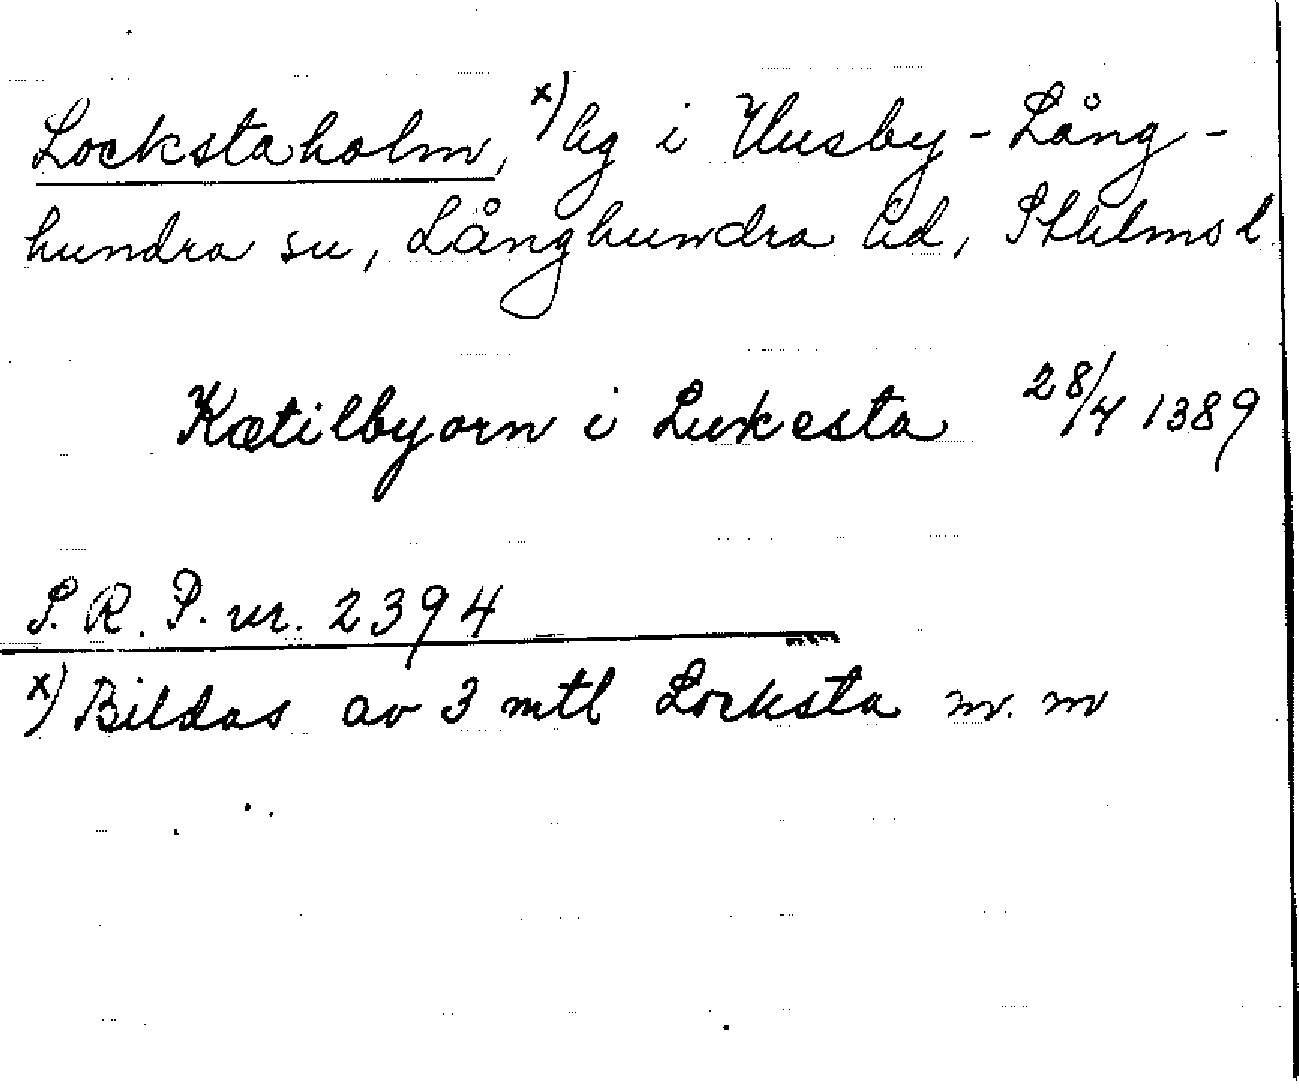 Lockstaholm, x) hg i Husby-Lång-
hundra sn, Långhundra hd, Sthlms l
Kætilbyorn i Lukesta 28/4 1389
S.R.P. nr. 2394
x) Bildas av 3 mtl Locksta m. m